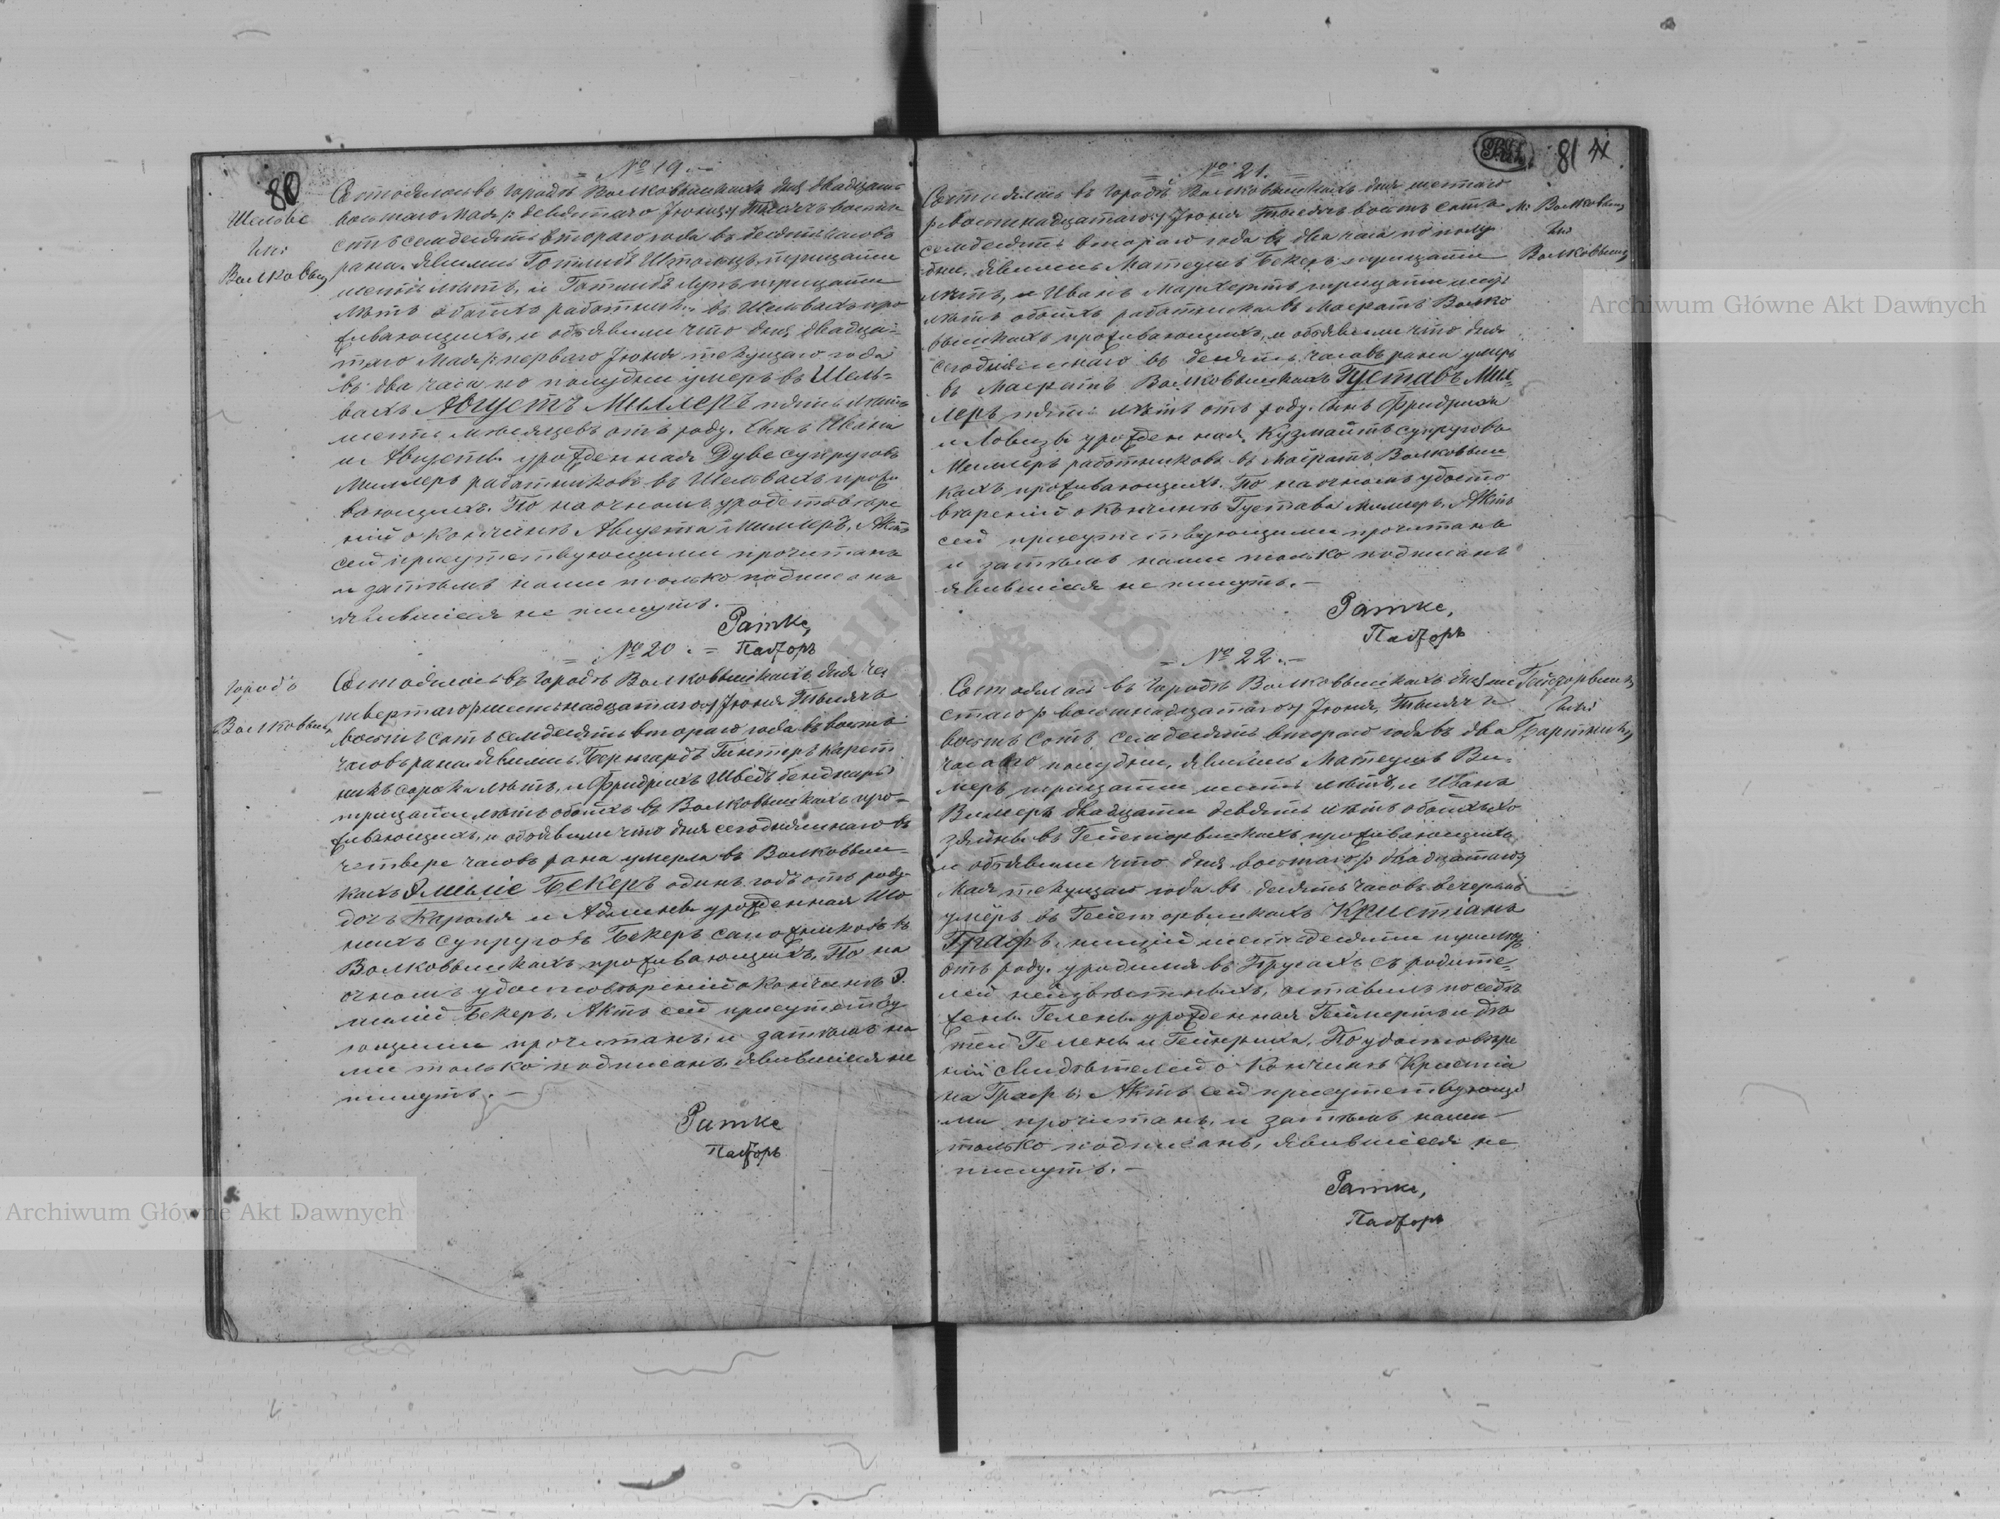 80
№ 19.
Шельве
Гмн:
Волковыш:
Состоялось въ городѣ Волковышкахъ дня двадцать
восьмаго Мая / девятаго Іюня / Тысяча восемь
сотъ семьдесятъ втораго года въ десять часовъ
рана. Явились Готлибъ тридцати
шести лѣтъ, и Готлибъ тридцати
лѣтъ обоихъ работники въ Шельвахъ про
живающихъ, и объявили что дня двадца-
таго Мая / перваго Іюня текущаго года
въ два часа по полудни умеръ въ Шель-
вахъ Августъ Миллеръ пять лѣтъ
шесть мѣсяцевъ отъ роду. Сынъ
и Августы урожденная Дуве супруговъ
Миллеръ работниковъ въ Шельвахъ прожи
вающихъ. По наочномъ удостовѣре
ніи о кончинѣ Августа Миллеръ, Актъ
сей присутствующими прочитанъ
и затѣмъ нами только подписанъ
явившіеся не пишутъ.
Ратке,
Пасторъ
№ 20.
Городъ
Волковыш:
Состоялось въ городѣ Волковышкахъ дня че
твертаго / шестьнадцатаго / Іюня Тысяча
восемь сотъ семьдесятъ втораго года въ восемь
часовъ рана. Явились Бернгардъ Гинтеръ карет
никъ сорока лѣтъ, и Фридрихъ Шведъ бенднаръ
тридцати лѣтъ обоихъ въ Волковышкахъ про-
живающихъ, и объявили что дня сегодняшнаго въ
четвере часовъ рана умерла въ Волковыш-
кахъ Эмиліе Бекеръ одинъ годъ отъ роду
дочь Кароля и Адлины урожденная
супруговъ Бекеръ сапожниковъ въ
Волковышкахъ проживающихъ. По на
очномъ удостовѣреніи о кончинѣ Э
миліи Бекеръ, Актъ сей присутству
ющими прочитанъ, и затѣмъ на
ми только подписанъ, явившіеся не
пишутъ.
Ратке
Пасторъ
81
№ 21.
М: Волковыш:
Гмн
Волковыш:
Состоялось въ городѣ Волковышкахъ дня шестаго
/ восемнадцатаго / Іюня Тысяча восемь сотъ
семьдесятъ втораго года въ два часа по полу
дни, Явились Матеушъ Бекеръ тридцати
лѣтъ, и Иванъ тридцати шести
лѣтъ обоихъ работники въ Маёратѣ Волко
вышкахъ проживающихъ, и объявили что дня
сегодняшнаго въ десять часовъ рана умеръ
въ Маёратѣ Волковышкахъ Густавъ Мил-
леръ пяти лѣтъ отъ роду. Сынъ Фридриха
и Ловизы урожденная Кузмайтъ супруговъ
Миллеръ работниковъ въ Маёратѣ Волковыш
кахъ проживающихъ. По наочномъ удосто
вѣреніи о кончинѣ Густава Миллеръ, Актъ
сей присутствующими прочитанъ
и затѣмъ нами только подписанъ
явившіеся не пишутъ.
Ратке,
Пасторъ
№ 22.
Гмн:
Состоялось въ городѣ Волковышкахъ дня ше
стаго / восемнадцатаго / Іюня, Тысяча
восемь сотъ семьдесятъ втораго года въ два
часа по полудни, явились Матеушъ Ви-
меръ тридцати шесть лѣтъ, и Иванъ
Вимеръ двадцати девять лѣтъ обоихъ хо
зяйны въ проживающихъ
и объявили что дня восьмаго / двадцатаго /
Мая текущаго года въ десять часовъ вечеромъ
умеръ въ Кристіанъ
Графъ, нищій шестьдесяти
отъ роду. уродился въ Прусахъ съ родите-
лей неизвѣстныхъ, оставилъ по себѣ
жену Гелену урожденная и дѣ
тей Гелену и Гейнриха. По удостовѣре
ніи свидѣтелей о кончинѣ Кристіа
на Графъ, Актъ сей присутствующи
ми прочитанъ, и затѣмъ нами
только подписанъ, явившіеся не
пишутъ.
Ратке,
Пасторъ
Archiwum Główne Akt Dawnych
Archiwum Główne Akt Dawnych